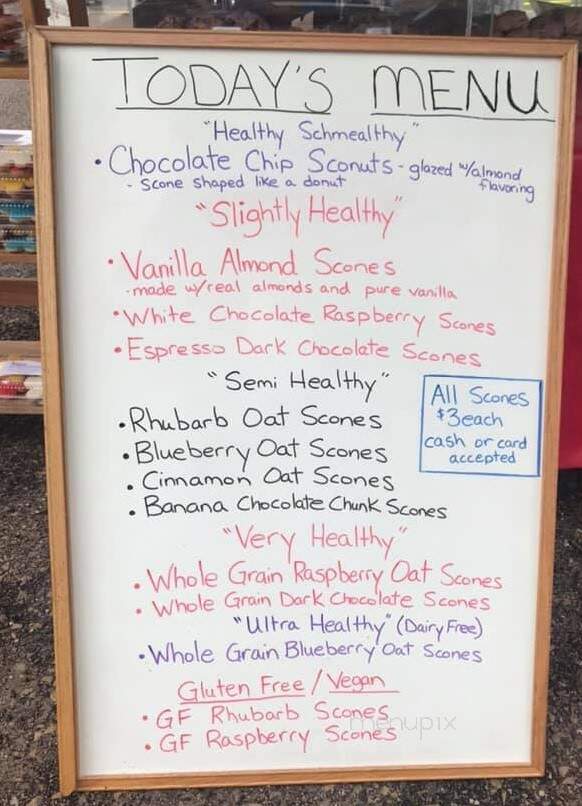 TODAY'S MENU
"Healthy Schmealthy"
• Chocolate Chip Sconuts - glazed w/almond flavoring
- Scone shaped like a donut
"Slightly Healthy"
• Vanilla Almond Scones
- made w/real almonds and pure vanilla
• White Chocolate Raspberry Scones
• Espresso Dark Chocolate Scones
"Semi Healthy"
All Scones
$3each
cash or card
accepted
• Rhubarb Oat Scones
• Blueberry Oat Scones
• Cinnamon Oat Scones
• Banana Chocolate Chunk Scones
"Very Healthy"
• Whole Grain Raspberry Oat Scones
• Whole Grain Dark Chocolate Scones
"Ultra Healthy" (Dairy Free)
• Whole Grain Blueberry Oat Scones
Gluten Free / Vegan
• GF Rhubarb Scones
• GF Raspberry Scones
menupix